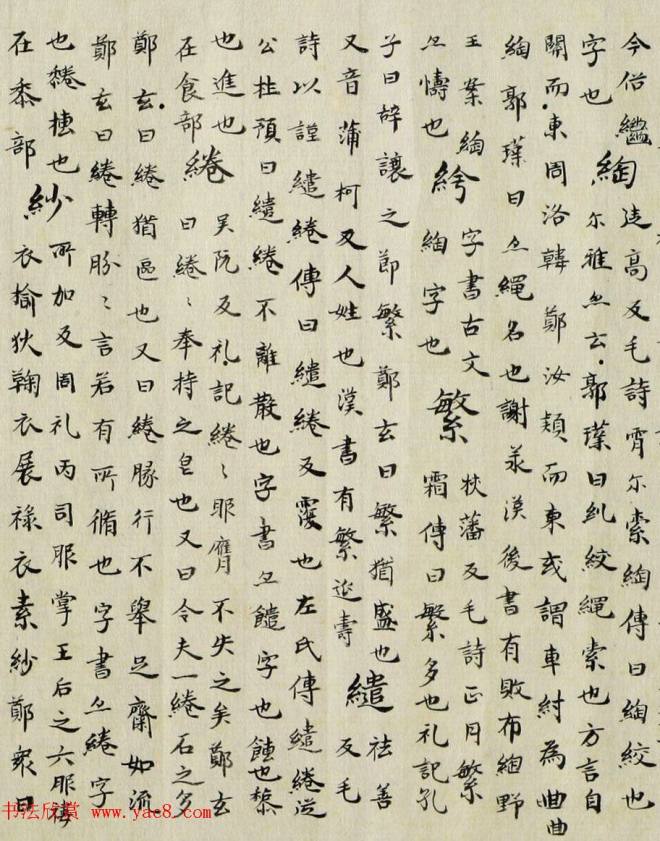 今俗繼
綯 徒高反毛詩宵尒索綯傳曰綯絞也
字也
尒雅亦云郭璞曰糺絞繩索也方言自
關而東周洛韓鄭汝潁而東或謂車紂為曲
綯郭璞曰亦繩名也謝承漢後書有敗布綯野
王案綯字書古文
亦幬也 綯字也 繁 扶藩反毛詩正月繁
霜傳曰繁多也礼記孔
子曰辭讓之節繁鄭玄曰繁猶盛也 繾 祛善
又音蒲柯反人姓也漢書有繁延壽 反毛
詩以謹繾綣傳曰繾綣反覆也左氏傳繾綣從
公杜預曰繾綣不離散也字書亦 字也
也進也 綣 吴阮反礼記綣〻 不失之矣鄭玄
在食部 曰綣〻奉持之皃也又曰令夫一綣石之多
鄭玄曰綣猶區也又曰綣豚行不舉足齊如流
鄭玄曰綣轉 〻言若有所循也字書亦綣字
也綣 也 紗 所加反周礼内司服掌王后之六服禕
在黍部 衣揄狄鞠衣展 衣素紗鄭衆曰
书法欣赏 www.yac8.com